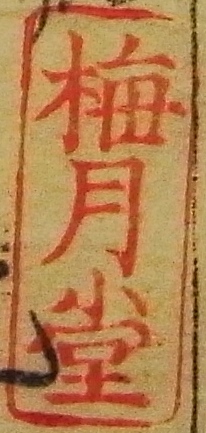 梅月堂